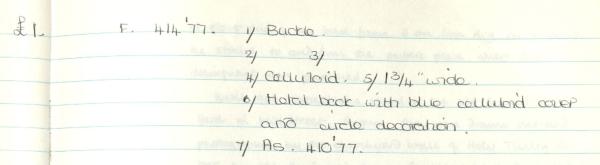 £1. F. 414'77. 1/ Buckle.
2/ 3/
4/ Celluloid. 5/ 1 3/4" wide.
6/ Metal back with blue celluloid cover
and circle decoration.
7/ As. 410'77.